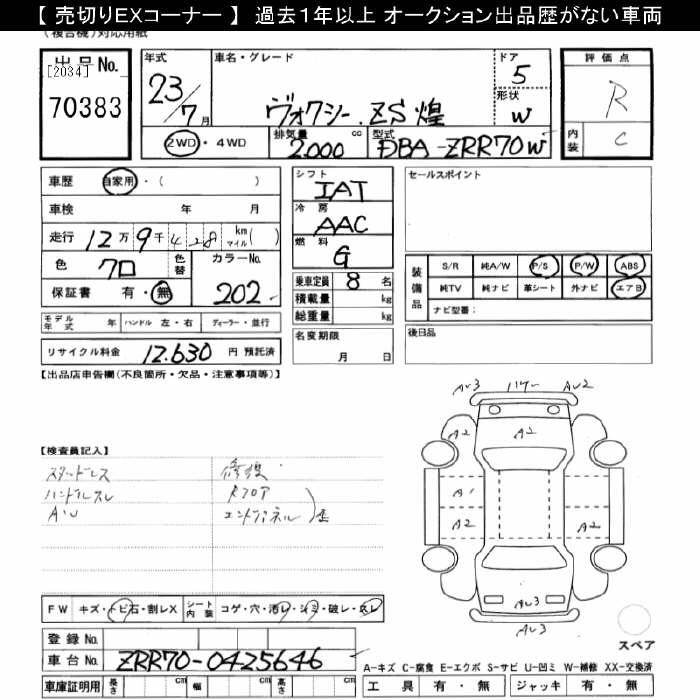 【 売切りEXコーナー 】 過去1年以上 オークション出品歴がない車両
(複合機)対応用紙
出品No.
[2034]
70383
年式 23/7月
車名・グレード
ヴォクシー. ZS煌
ドア 5
形状 W
評価点
R
内装 C
2WD・4WD
排気量 cc 2000
型式 DBA-ZRR70W
車歴 自家用・( )
車検 年 月
走行 12万9千428 km マイル( )
色 クロ
色替
カラーNo. 202
保証書 有・無
モデル年式 年 ハンドル 左・右 ディーラー・並行
リサイクル料金 12.630 円 預託済
シフト IAT
冷房 AAC
燃料 G
乗車定員 8 名
積載量 kg
総重量 kg
名変期限
月 日
セールスポイント
装備品
S/R 純A/W P/S P/W ABS
純TV 純ナビ 革シート 外ナビ エアB
ナビ型番:
後日品
【出品店申告欄(不良箇所・欠品・注意事項等)】
【検査員記入】
スタッドレス
ハンドルスレ
AU
修復
Rフロア
エンドパネル
AU3
AU2
A2
A2
A2
A1
A2
A2
AU3
AU3
FW キズ・トビ石・割レX シート内装 コゲ・穴・汚レ・シミ・破レ・スレ
登録No.
車台No. ZRR70-0425646
車庫証明用 長さ cm 幅 cm 高さ cm
スペア
A-キズ C-腐食 E-エクボ S-サビ U-凹ミ W-補修 XX-交換済
工具 有・無 ジャッキ 有・無